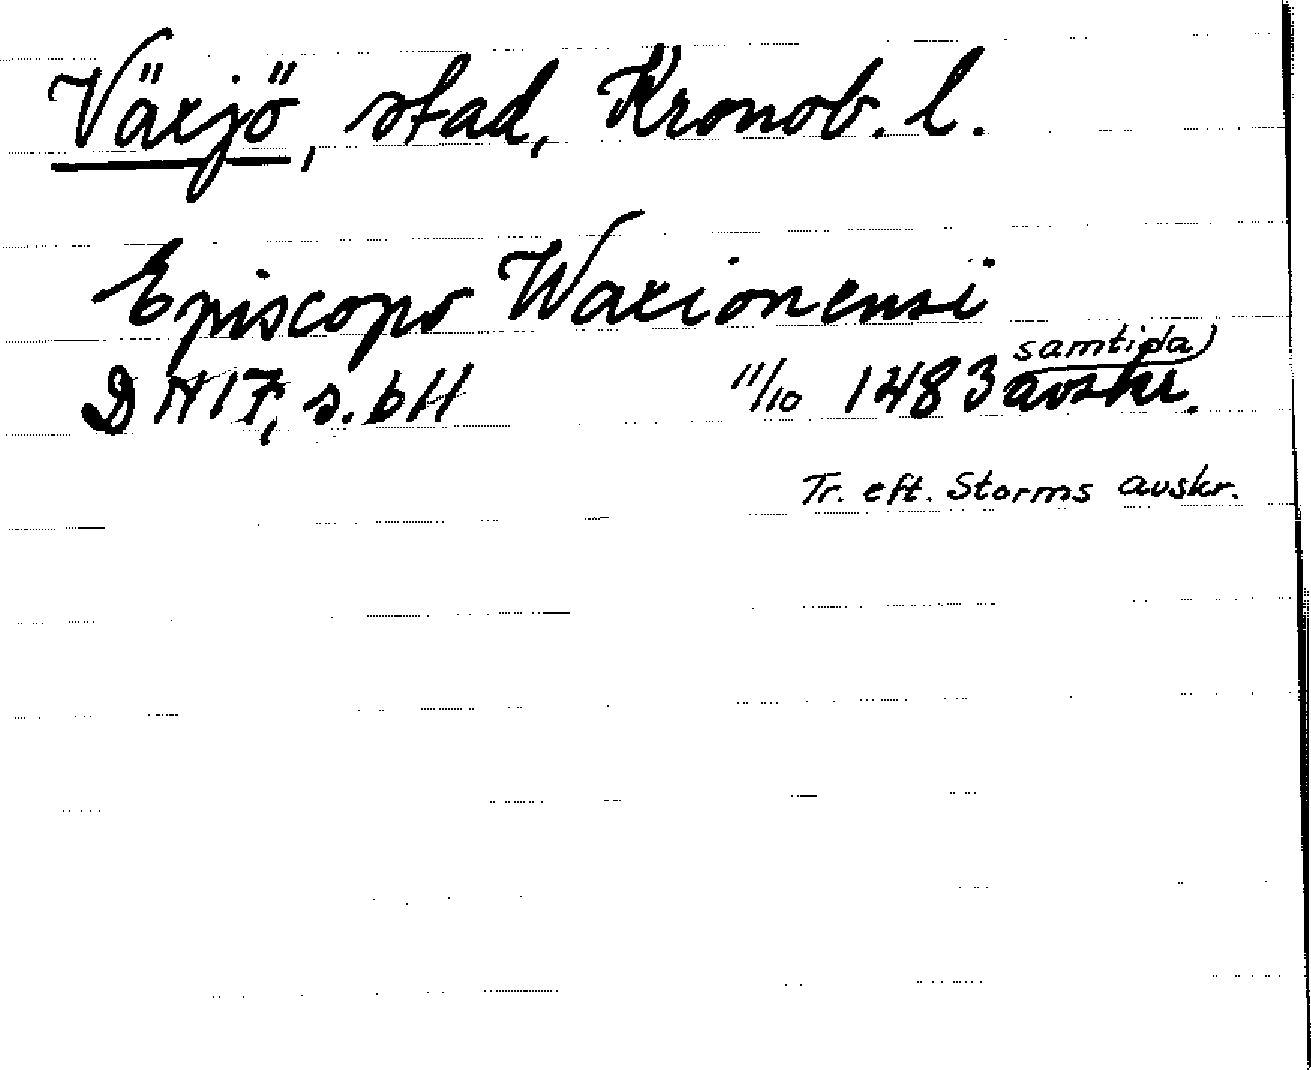 Växjö, stad, Kronob. l.
Episcopo Waxionensi
DN 17, s. 611 11/10 1483 samtida avskr.
Tr. eft. Storms avskr.